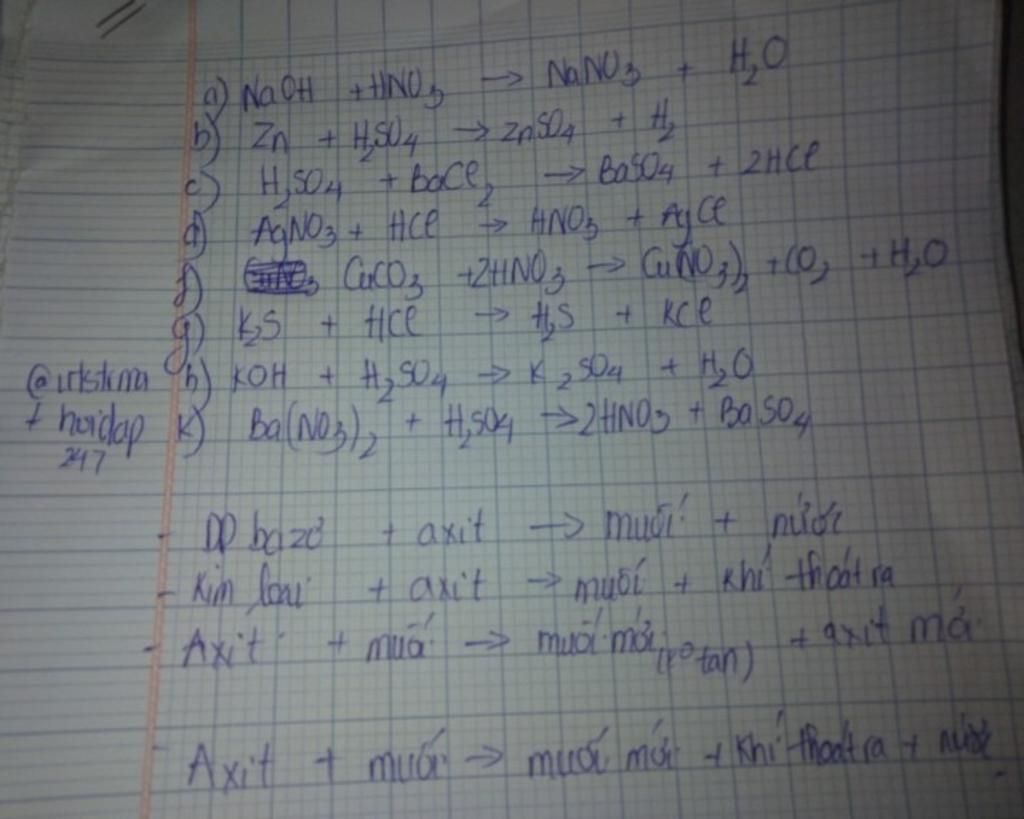 a) NaOH + HNO₃ → NaNO₃ + H₂O
b) Zn + H₂SO₄ → ZnSO₄ + H₂
c) H₂SO₄ + BaCl₂ → BaSO₄ + 2HCl
d) AgNO₃ + HCl → HNO₃ + AgCl
f) CuCO₃ + 2HNO₃ → Cu(NO₃)₂ + CO₂ + H₂O
g) K₂S + HCl → H₂S + KCl
h) KOH + H₂SO₄ → K₂SO₄ + H₂O
k) Ba(NO₃)₂ + H₂SO₄ → 2HNO₃ + BaSO₄
+ hoidap
247
- DD bazơ + axit → muối + nước
- Kim loại + axit → muối + khí thoát ra
- Axit + muối → muối mới (k° tan) + axit mới
- Axit + muối → muối mới + khí thoát ra + nước